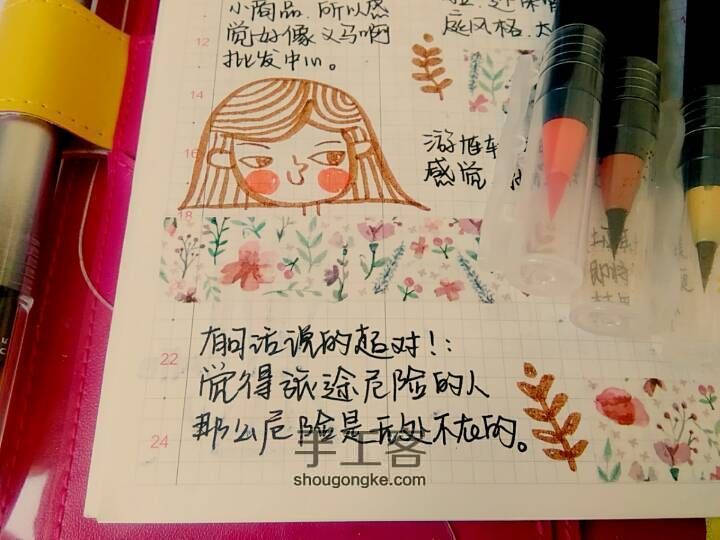 小商品,所以感
觉好像义乌啊
批发中心。
庭风格.太
12
14
游推车
16
感觉
18
22
有句话说的超对!:
觉得旅途危险的人
24
那么危险是无处不在的。
手工客
shougongke.com